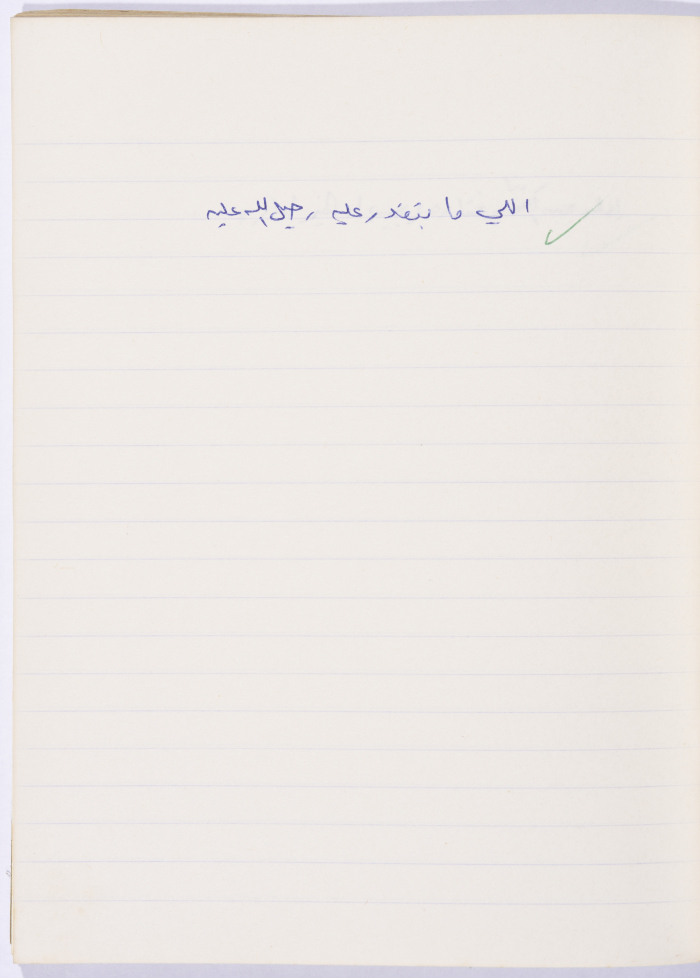 اللي ما بتقدر عليه ، حيل الله عليه